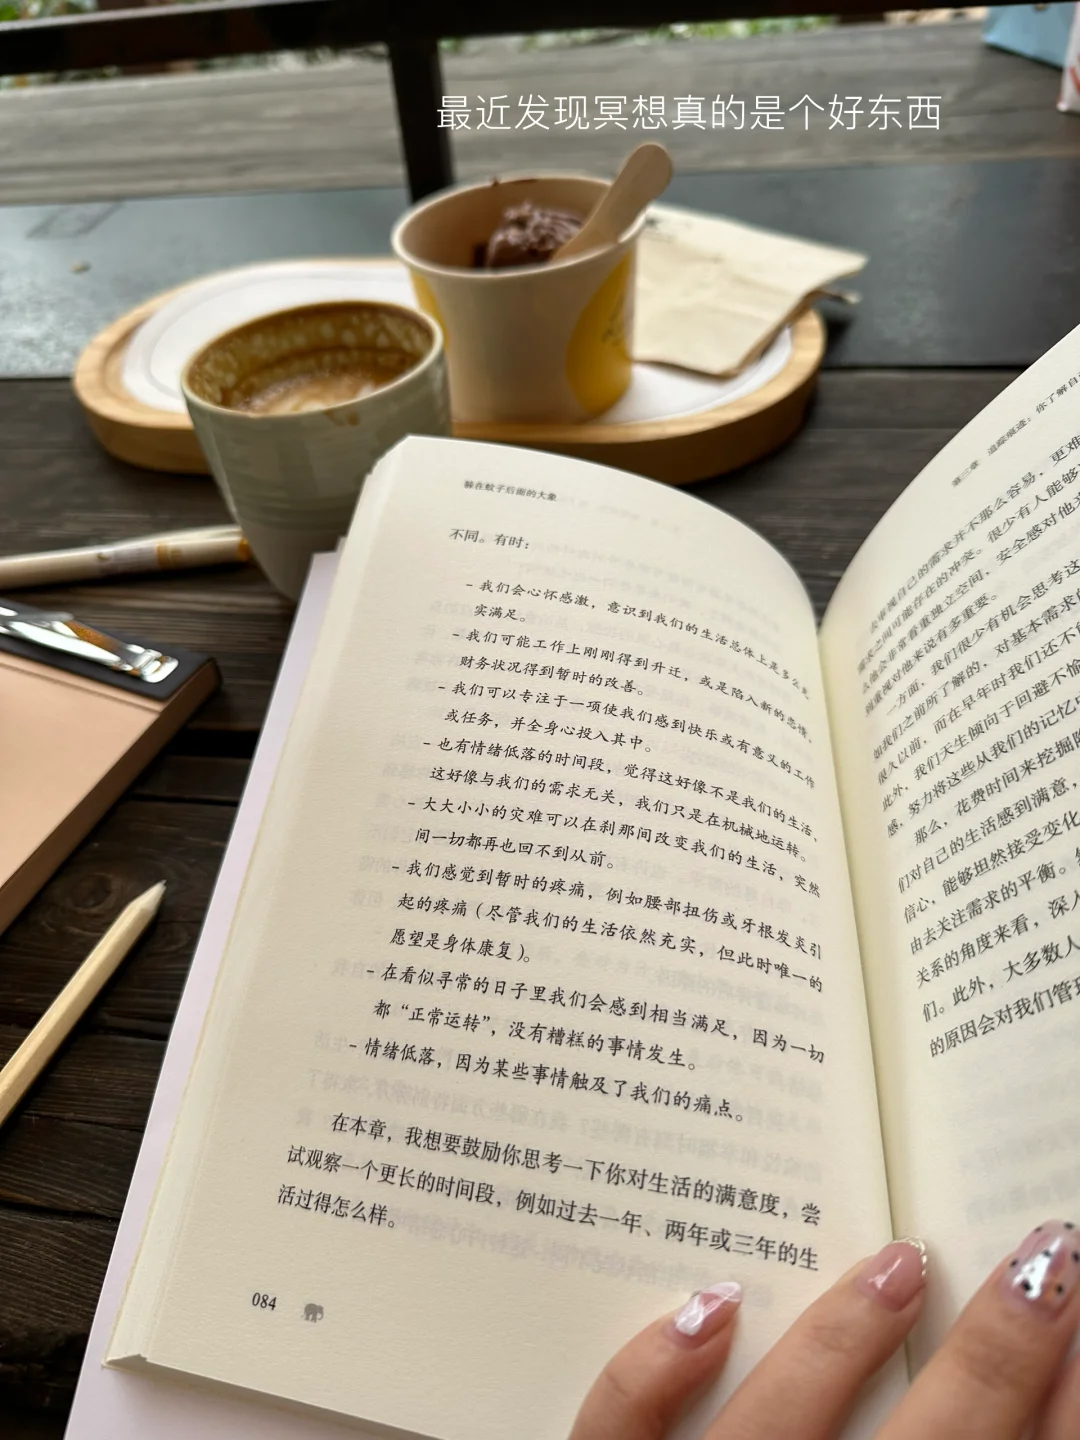 最近发现冥想真的是个好东西
躲在蚊子后面的大象
不同。有时：
- 我们会心怀感激，意识到我们的生活总体上是多么充
实满足。
- 我们可能工作上刚刚得到升迁，或是陷入新的恋情，
财务状况得到暂时的改善。
- 我们可以专注于一项使我们感到快乐或有意义的工作
或任务，并全身心投入其中。
- 也有情绪低落的时间段，觉得这好像不是我们的生活，
这好像与我们的需求无关，我们只是在机械地运转。
- 大大小小的灾难可以在刹那间改变我们的生活，突然
间一切都再也回不到从前。
- 我们感觉到暂时的疼痛，例如腰部扭伤或牙根发炎引
起的疼痛（尽管我们的生活依然充实，但此时唯一的
愿望是身体康复）。
- 在看似寻常的日子里我们会感到相当满足，因为一切
都“正常运转”，没有糟糕的事情发生。
- 情绪低落，因为某些事情触及了我们的痛点。
在本章，我想要鼓励你思考一下你对生活的满意度，尝
试观察一个更长的时间段，例如过去一年、两年或三年的生
活过得怎么样。
084
第三章 追踪痕迹：你了解自
自己的需求并不那么容易，更难
需求之间可能存在的冲突。很少有人能够
么他会非常看重独立空间，安全感对他
到重视对他来说有多重要。
一方面，我们很少有机会思考这
如我们之前所了解的，对基本需求的
很久以前，而在早年时我们还不
此外，我们天生倾向于回避不愉
感，努力将这些从我们的记忆中
那么，花费时间来挖掘
们对自己的生活感到满意，
信心，能够坦然接受变化
由去关注需求的平衡。
关系的角度来看，深人
们。此外，大多数人
的原因会对我们管理